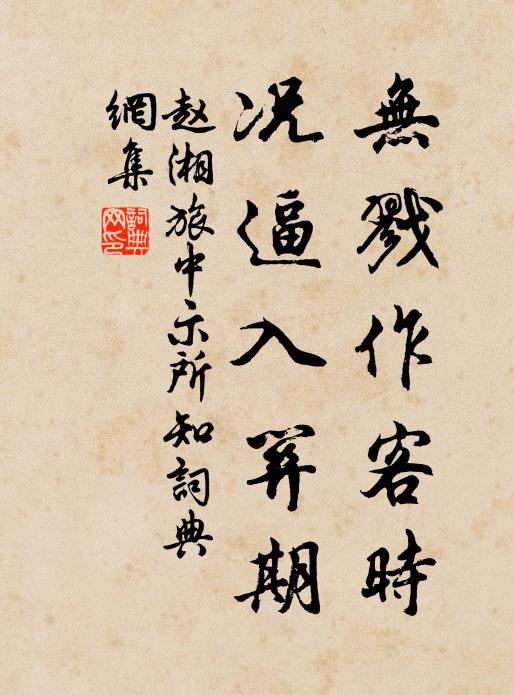 無戮作客時
况逼入笄期
赵湘旅中示所知詞典
網集
詞典
网印